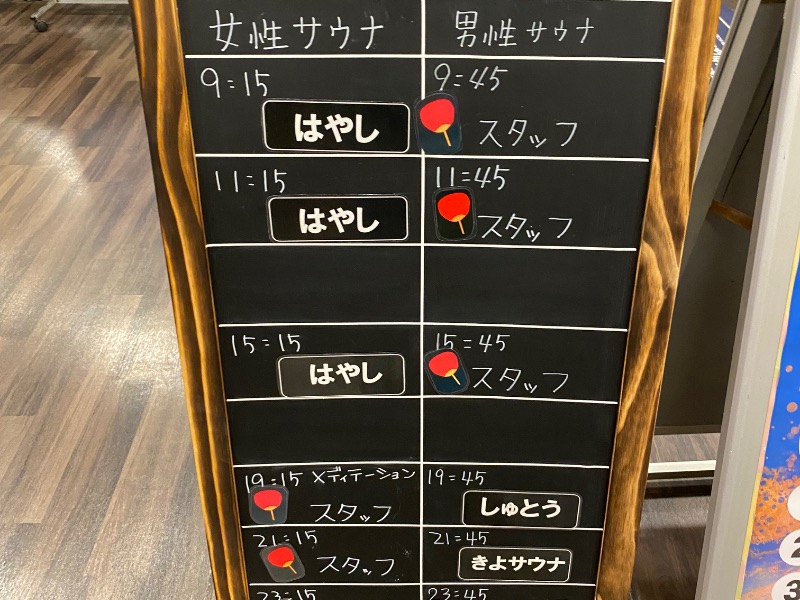 女性サウナ 男性サウナ
9:15 9:45
はやし スタッフ
11:15 11:45
はやし スタッフ
15:15 15:45
はやし スタッフ
19:15 メディテーション 19:45
スタッフ しゅとう
21:15 21:45
スタッフ きよサウナ
23:15 23:45
2
3